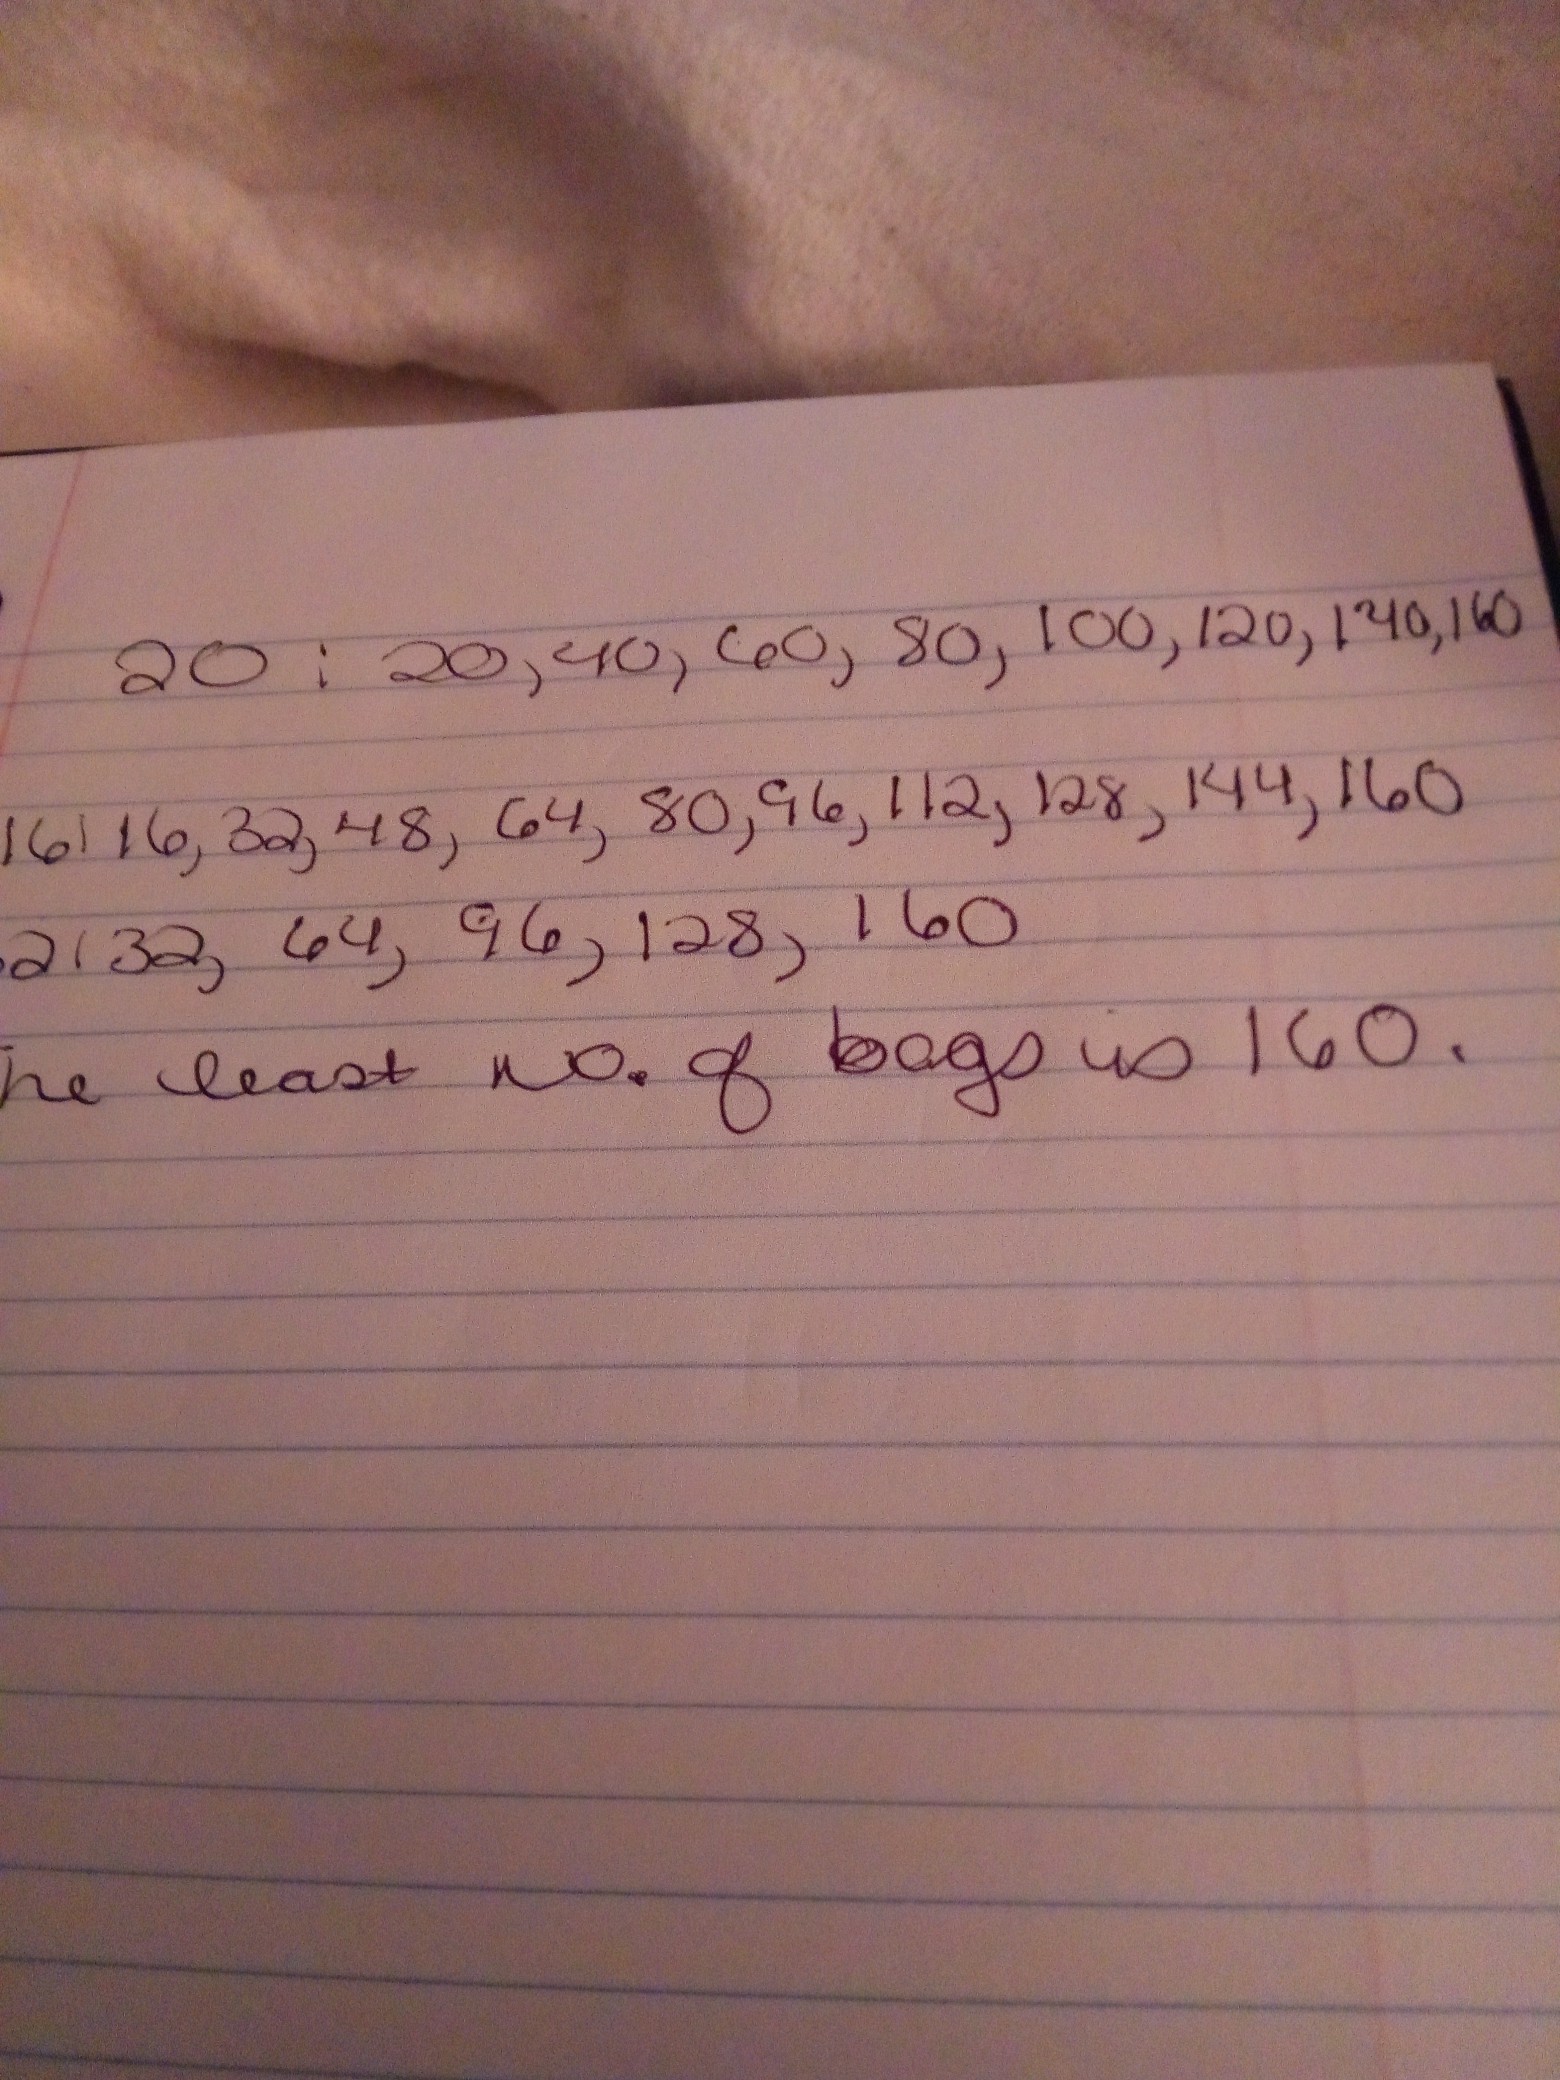 20 : 20, 40, 60, 80, 100, 120, 140, 160
16: 16, 32, 48, 64, 80, 96, 112, 128, 144, 160
2: 32, 64, 96, 128, 160
he least no. of bags is 160.